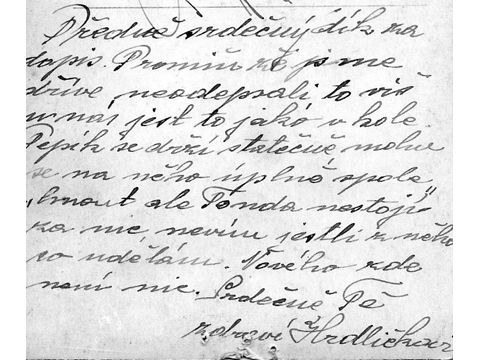 Předně srdečný dík za
dopis. Promiň že jsme
dříve neodepsali to víš
u nás jest to jako v kole.
Pepík se drží statečně může
se na něho úplně spole
„hnout ale Tonda nestojí"
za nic, nevím jestli z něho
co udělám. Nového zde
není nic. Srdečně Tě
zdraví Hrdličkovi